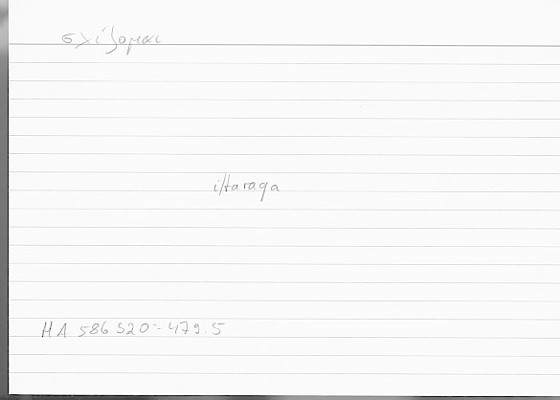 σχίζομαι
iḥtaraqa
HA 586 S20 - 479.5